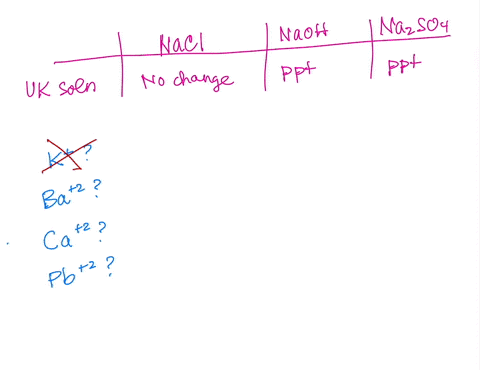 NaCl NaOH Na2SO4
UK soln No change ppt ppt
K+ ?
Ba+2 ?
Ca+2 ?
Pb+2 ?